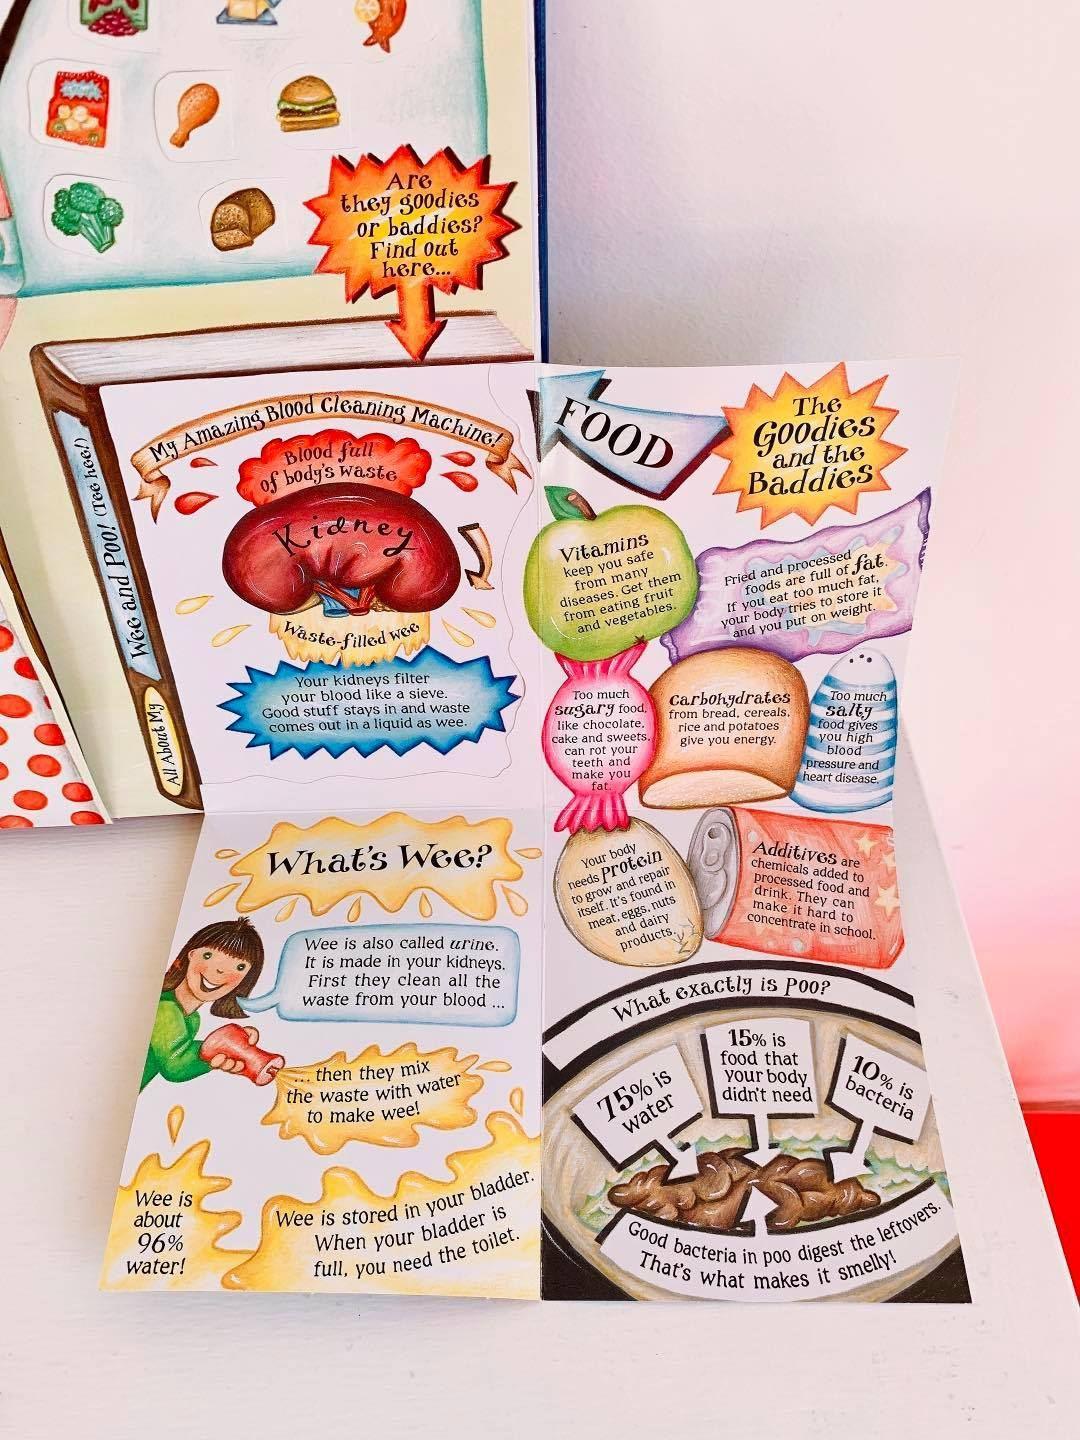 Are
they goodies
or baddies?
Find out
here...
All About My
Wee and Poo! (Tee hee!)
My Amazing Blood Cleaning Machine!
Blood full
of body's waste
Kidney
Waste-filled wee
Your kidneys filter
your blood like a sieve.
Good stuff stays in and waste
comes out in a liquid as wee.
FOOD
The
Goodies
and the
Baddies
Vitamins
keep you safe
from many
diseases. Get them
from eating fruit
and vegetables.
Fried and processed
foods are full of fat.
If you eat too much fat,
your body tries to store it
and you put on weight.
Too much
sugary food,
like chocolate,
cake and sweets,
can rot your
teeth and
make you
fat.
Carbohydrates
from bread, cereals,
rice and potatoes
give you energy.
Too much
salty
food gives
you high
blood
pressure and
heart disease.
Your body
needs protein
to grow and repair
itself. It's found in
meat, eggs, nuts
and dairy
products.
Additives are
chemicals added to
processed food and
drink. They can
make it hard to
concentrate in school.
What's Wee?
Wee is also called urine.
It is made in your kidneys.
First they clean all the
waste from your blood ...
... then they mix
the waste with water
to make wee!
Wee is
about
96%
water!
Wee is stored in your bladder.
When your bladder is
full, you need the toilet.
What exactly is Poo?
75% is
water
15% is
food that
your body
didn't need
10% is
bacteria
Good bacteria in poo digest the leftovers.
That's what makes it smelly!